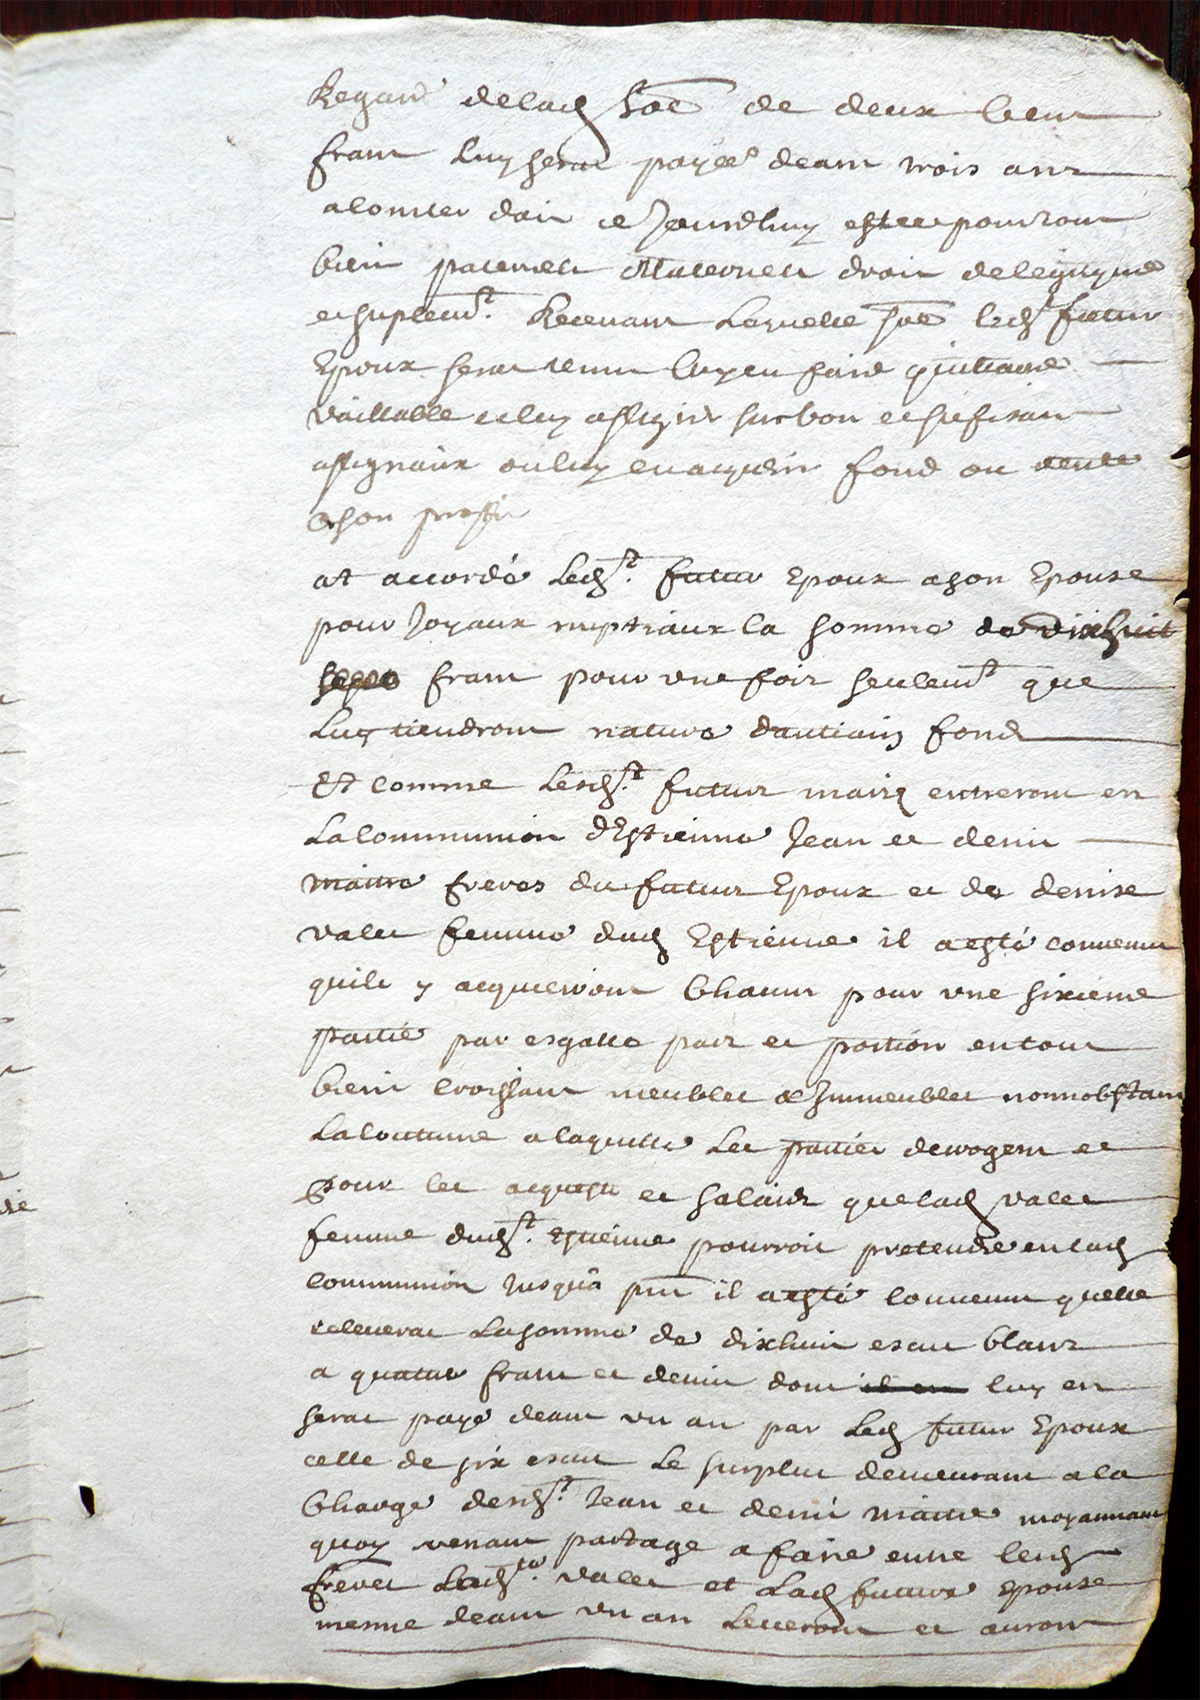 Regard delad so͠e de deux Cent
franc luy serat payée deant trois ans
a Comter dois ce Jourdhuy est ce pour tout
bien paternels Maternels droit de legityme
et suplemt. Recevant Laquelle so͠e ledt futur
Epoux serat tenu luy en faire quittance
vaillable et luy assigner sur bon et sufisant
assignaux ou luy en acquerir fond ou rente
a son profit
at accordé Ledt. futur Epoux a son Epouse
pour Joyaux nuptiaux la somme de dixhuit
franc pour une fois seulemt que
Luy tiendront nature dantiain fond
Et comme Lesdt. futur mariez entreront en
La Communion dEstienne Jean et denis
maitre freres du futur Epoux et de denise
valet femme dud Estienne il at esté convenu
quils y acquieront Chacun pour une sixieme
partie par esgalle part et portion en tous
biens Croissant meubles et Immeubles nonnobstant
La Coutume a laquelle Les parties derogent et
Pour les acquest et salaire que lad valet
femme dudt. Estienne pourroit pretendre en lad
Communion Jusqua pnt il at esté Convenu quelle
relevera La somme de dixhuit escu blans
a quatre franc et demis dont luy en
serat payé deant un an par Led futur Epoux
celle de six escus Le surplus demeurant a la
Charge desdt. Jean et denis maitre moyannant
quoy venant partage a faire entre lesd
freres Ladte. valet et Lad future Epouse
mesme deant un an Leveront et auront